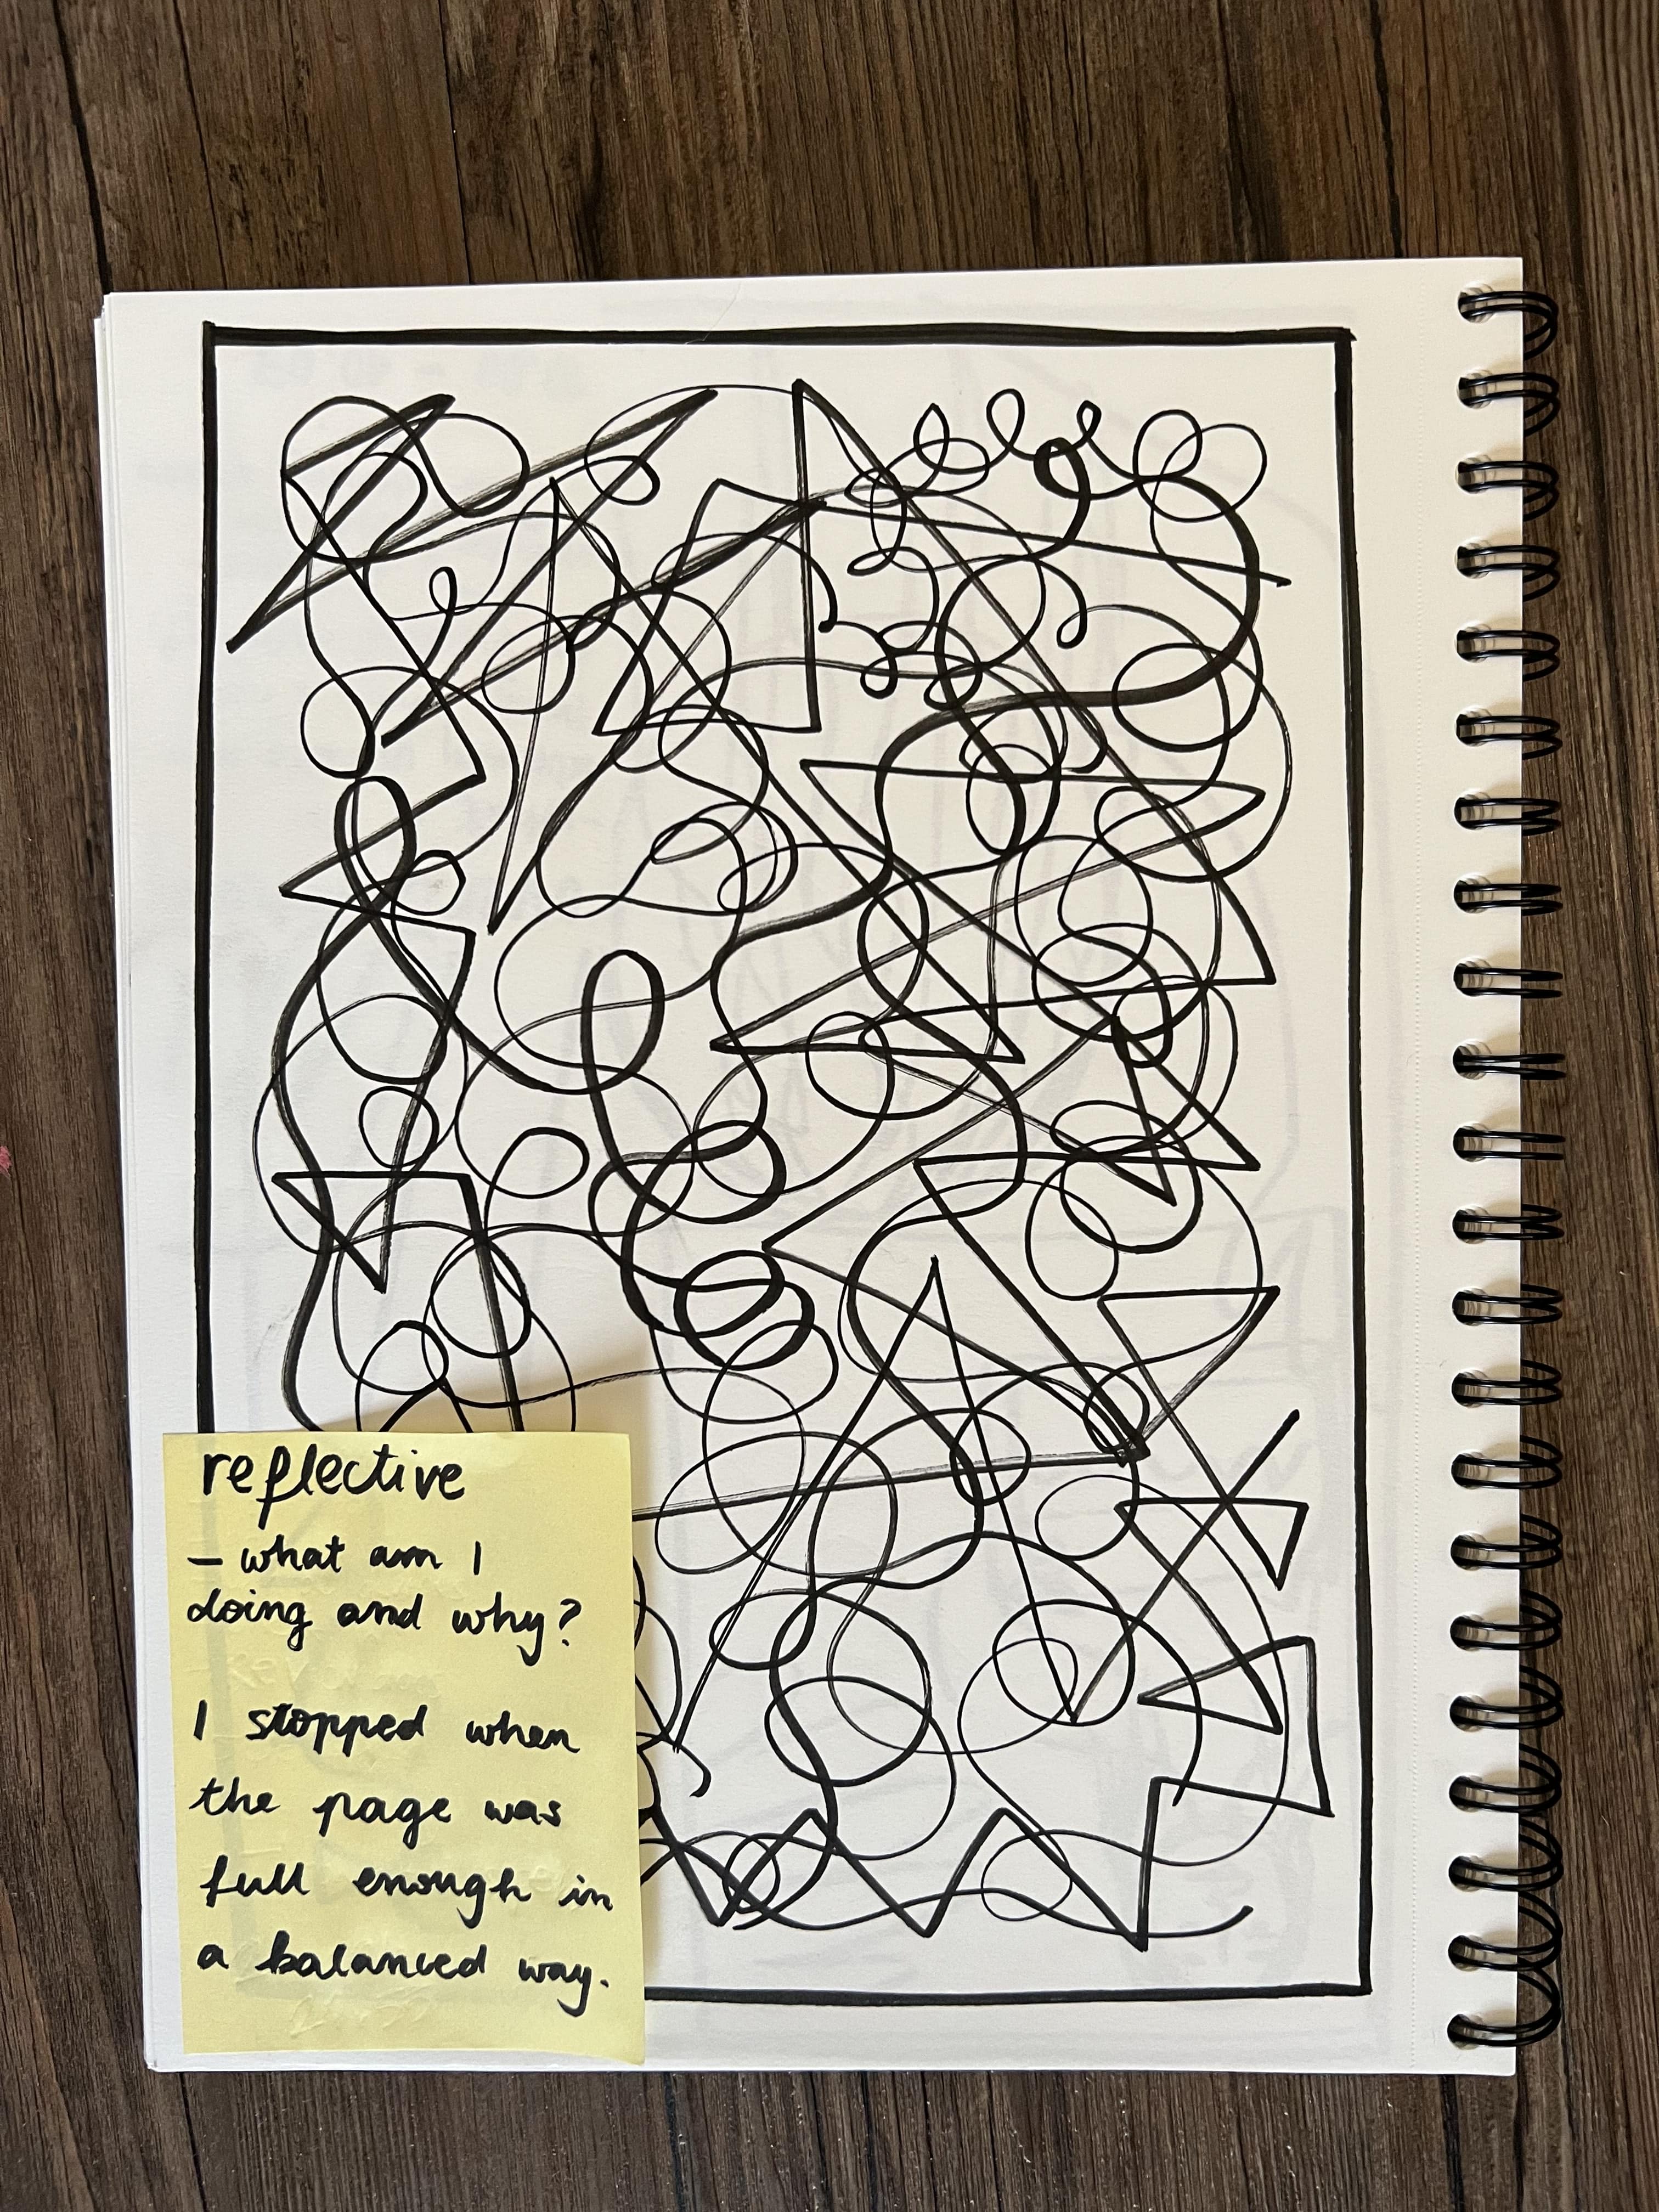 reflective
– what am I
doing and why?
I stopped when
the page was
full enough in
a balanced way.